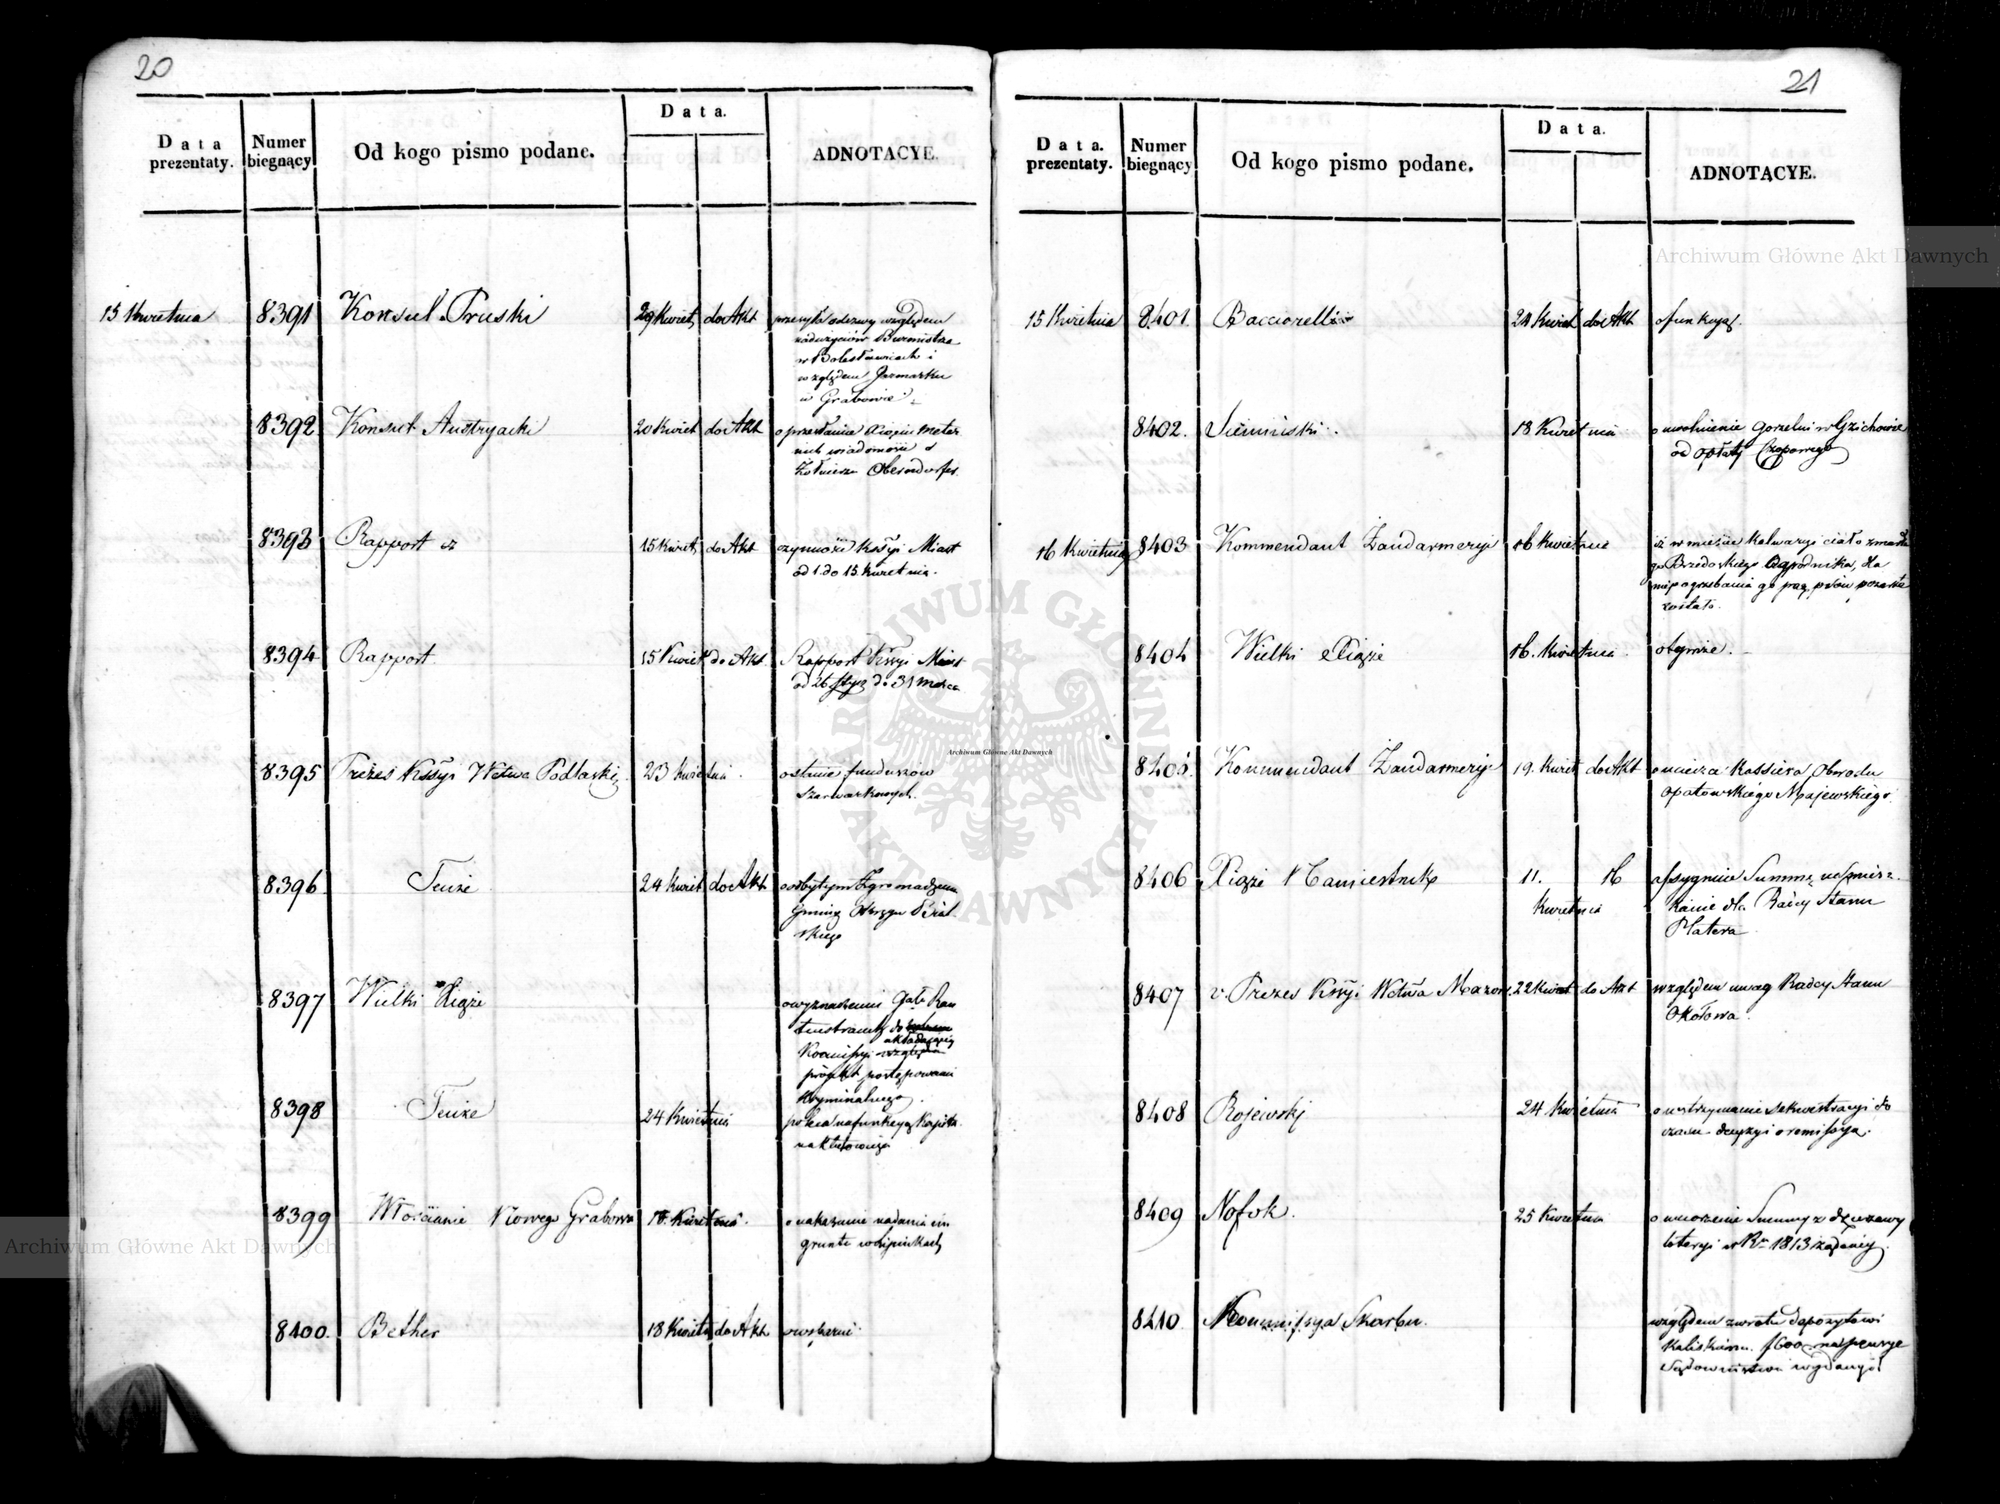 20
Data prezentaty.
Numer biegnący
Od kogo pismo podane.
Data.
ADNOTACYE.
15 Kwietnia
8391
Konsul Pruski
29 Kwiet do Akt
przesyła odezwy względem
nadużyciów Burmistrza
w Bolesławicach i
względem Jarmarku
w Grabowie
8392
Konsul Austryacki
20 Kwiet do Akt
o przesłanie
wiadomości o
Żołnierzu Oberndorfer
8393
Rapport z
15 Kwiet do Akt
czynności Kssyi Miast
od 1. do 15 Kwietnia.
8394
Rapport
15 Kwiet do Akt
Rapport Kssyi Miast
od 26 Stycz do 31 Marca
8395
Prezes Kssyi Wdtwa Podlaski
23 Kwietnia.
o stanie funduszów
Szarwarkowych.
8396
Tenże
24 Kwiet do Akt
o odbytym Zgromadzeniu
Gminy Okręgu Bial-
skiego
8397
Wielki Xiąże
o wyznaczenie
do
Kommissyi
układającey
projekt postępowania
Kryminalnego.
8398
Tenże
24 Kwietnia
8399
Włościanie Nowego Grabowa
Kwietnia.
o nakazanie nadania im
gruntu w Lipinkach
8400.
Bether
18 Kwiet do Akt
21
Data. prezentaty.
Numer biegnący
Od kogo pismo podane.
Data.
ADNOTACYE.
15 Kwietnia
8401
Bacciorelli
24 Kwiet do Akt
o funkcyą.
8402.
Siemiński.
18 Kwietnia
o uwolnienie Gorzelni w Gzichowie
od opłaty Czopowego
16 Kwietnia
8403
Kommendant Żandarmeryi
16 Kwietnia
iż w mieście Kalwaryi ciało zmarłe-
go Ogrodnika, dla
niepogrzebania go psów pożarte
zostało.
8404
Wielki Xiąże
16. Kwietnia
8405.
Kommendant Żandarmeryi
19. Kwiet do Akt
o ucieczce Kassiera Obwodu
Opatowskiego Majewskiego.
8406
Xiąże Namiestnik
11. 16
Kwietnia
assygnuie Summę na pomiesz-
kanie dla Radcy Stanu
Platera
8407
v. Prezes Kssyi Wdtwa Mazow.
22 Kwiet do Akt
względem uwag Radcy Stanu
Okołowa.
8408
Rojewski
24 Kwietnia
o wstrzymanie Sekwestracyi do
czasu decyzyi o remissyą.
8409
Nofok.
25 Kwietnia
o umorzenie Summy z dzierzawy
loteryi w Ru 1813
8410.
Kommissya Skarbu.
względem zwrotu depozytowi
Kaliskiemu. f 600
Archiwum Główne Akt Dawnych
Archiwum Główne Akt Dawnych
Archiwum Główne Akt Dawnych
ARCHIWUM GŁÓWNE AKT DAWNYCH